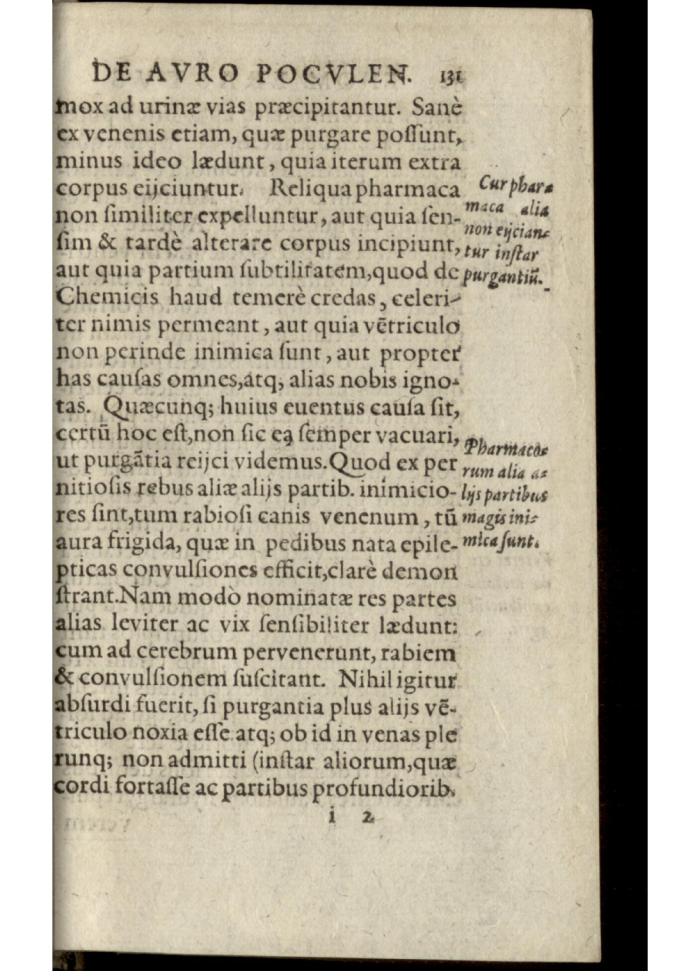 DE AVRO POCVLEN. 131
mox ad urinæ vias præcipitantur. Sanè
ex venenis etiam, quæ purgare poſſunt,
minus ideo lædunt, quia iterum extra
corpus eijciuntur. Reliqua pharmaca
non ſimiliter expelluntur, aut quia ſen-
ſim & tardè alterare corpus incipiunt,
aut quia partium ſubtilitatem, quod de
Chemicis haud temerè credas, celeri-
ter nimis permeant, aut quia vẽtriculo
non perinde inimica ſunt, aut propter
has cauſas omnes, atq; alias nobis igno-
tas. Quæcunq; huius euentus cauſa ſit,
certũ hoc eſt, non ſic ea ſemper vacuari,
ut purgãtia reijci videmus. Quod ex per
nitioſis rebus aliæ alijs partib. inimicio-
res ſint, tum rabioſi canis venenum, tũ
aura frigida, quæ in pedibus nata epile-
pticas convulſiones efficit, clarè demon
ſtrant. Nam modò nominatæ res partes
alias leviter ac vix ſenſibiliter lædunt:
cum ad cerebrum pervenerunt, rabiem
& convulſionem ſuſcitant. Nihil igitur
abſurdi fuerit, ſi purgantia plus alijs vẽ-
triculo noxia eſſe atq; ob id in venas ple
runq; non admitti (inſtar aliorum, quæ
cordi fortaſſe ac partibus profundiorib.
i 2
Cur phar=
maca alia
non eijcian=
tur inſtar
purgantiũ.
Pharmaco=
rum alia a=
lijs partibus
magis ini=
mica ſunt.